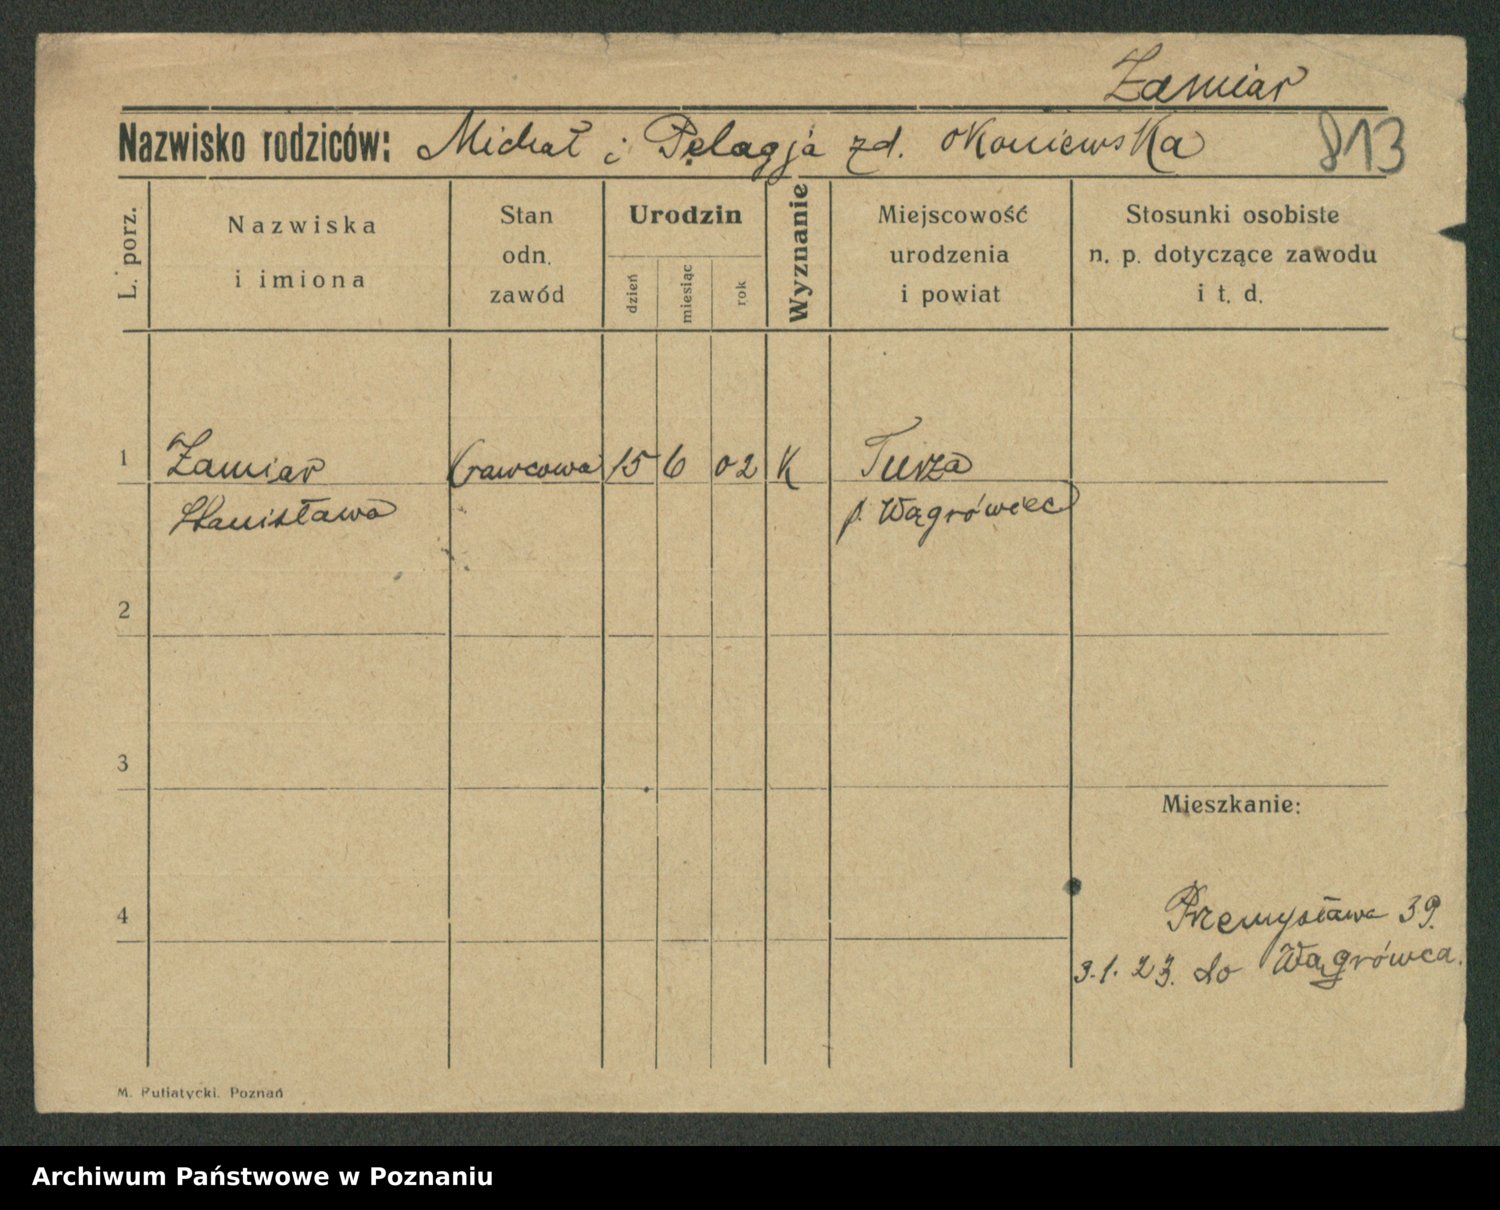 Zamiar
Nazwisko rodziców: Michał i Pelagja zd. Okoniewska 813
L. porz.
Nazwiska
i imiona
Stan
odn.
zawód
Urodzin
dzień
miesiąc
rok
Wyznanie
Miejscowość
urodzenia
i powiat
Stosunki osobiste
n. p. dotyczące zawodu
i t. d.
1 Zamiar Krawcowa 15 6 02 K Turza
Stanisława p. Wągrówiec
2
3
Mieszkanie:
4
Przemysława 39.
3.1.23. do Wągrówca.
M. Putiatycki. Poznań
Archiwum Państwowe w Poznaniu